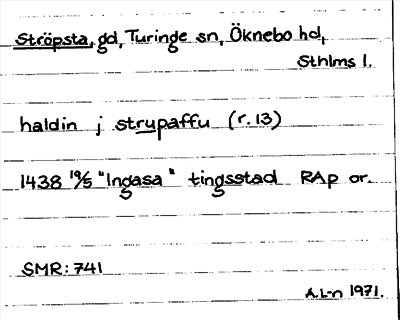 Ströpsta, gd, Turinge sn, Öknebo hd,
Sthlms l.
haldin j strupaffu (r. 13)
1438 19/5 "Ingasa" tingsstad RAp or.
SMR: 741
A.L-n 1971.